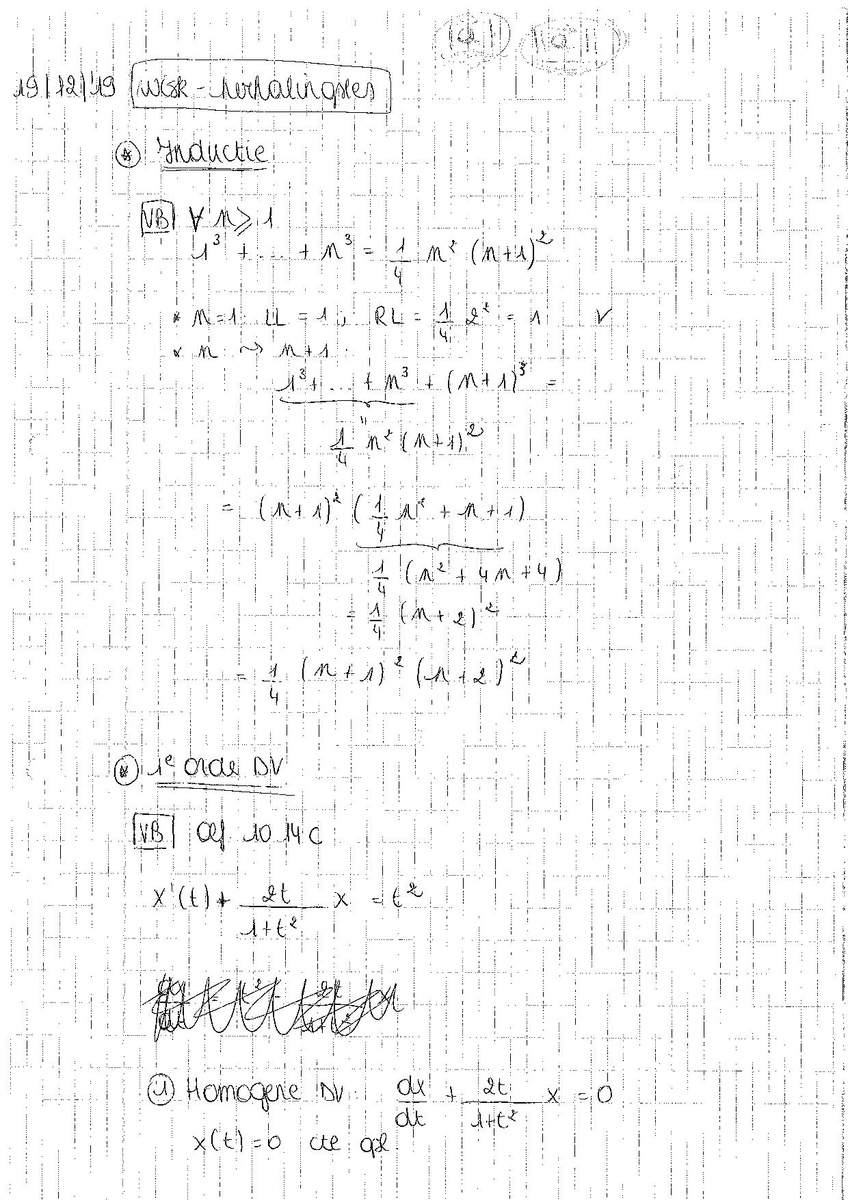 19/12/'19 Wisk-herhalingsles
* Inductie
VB ∀ n ≥ 1
1³ + ... + n³ = 1/4 n² (n+1)²
* n=1: LL = 1, RL = 1/4 2² = 1 ✓
* n ⇝ n+1
1³ + ... + n³ + (n+1)³ =
1/4 n² (n+1)²
= (n+1)² (1/4 n² + n + 1)
1/4 (n² + 4n + 4)
= 1/4 (n+2)²
= 1/4 (n+1)² (n+2)²
* 1e orde DV
VB Oef 10.14C
x'(t) + 2t/(1+t²) x = t²
① Homogene DV: dx/dt + 2t/(1+t²) x = 0
x(t) = 0 cte opl.